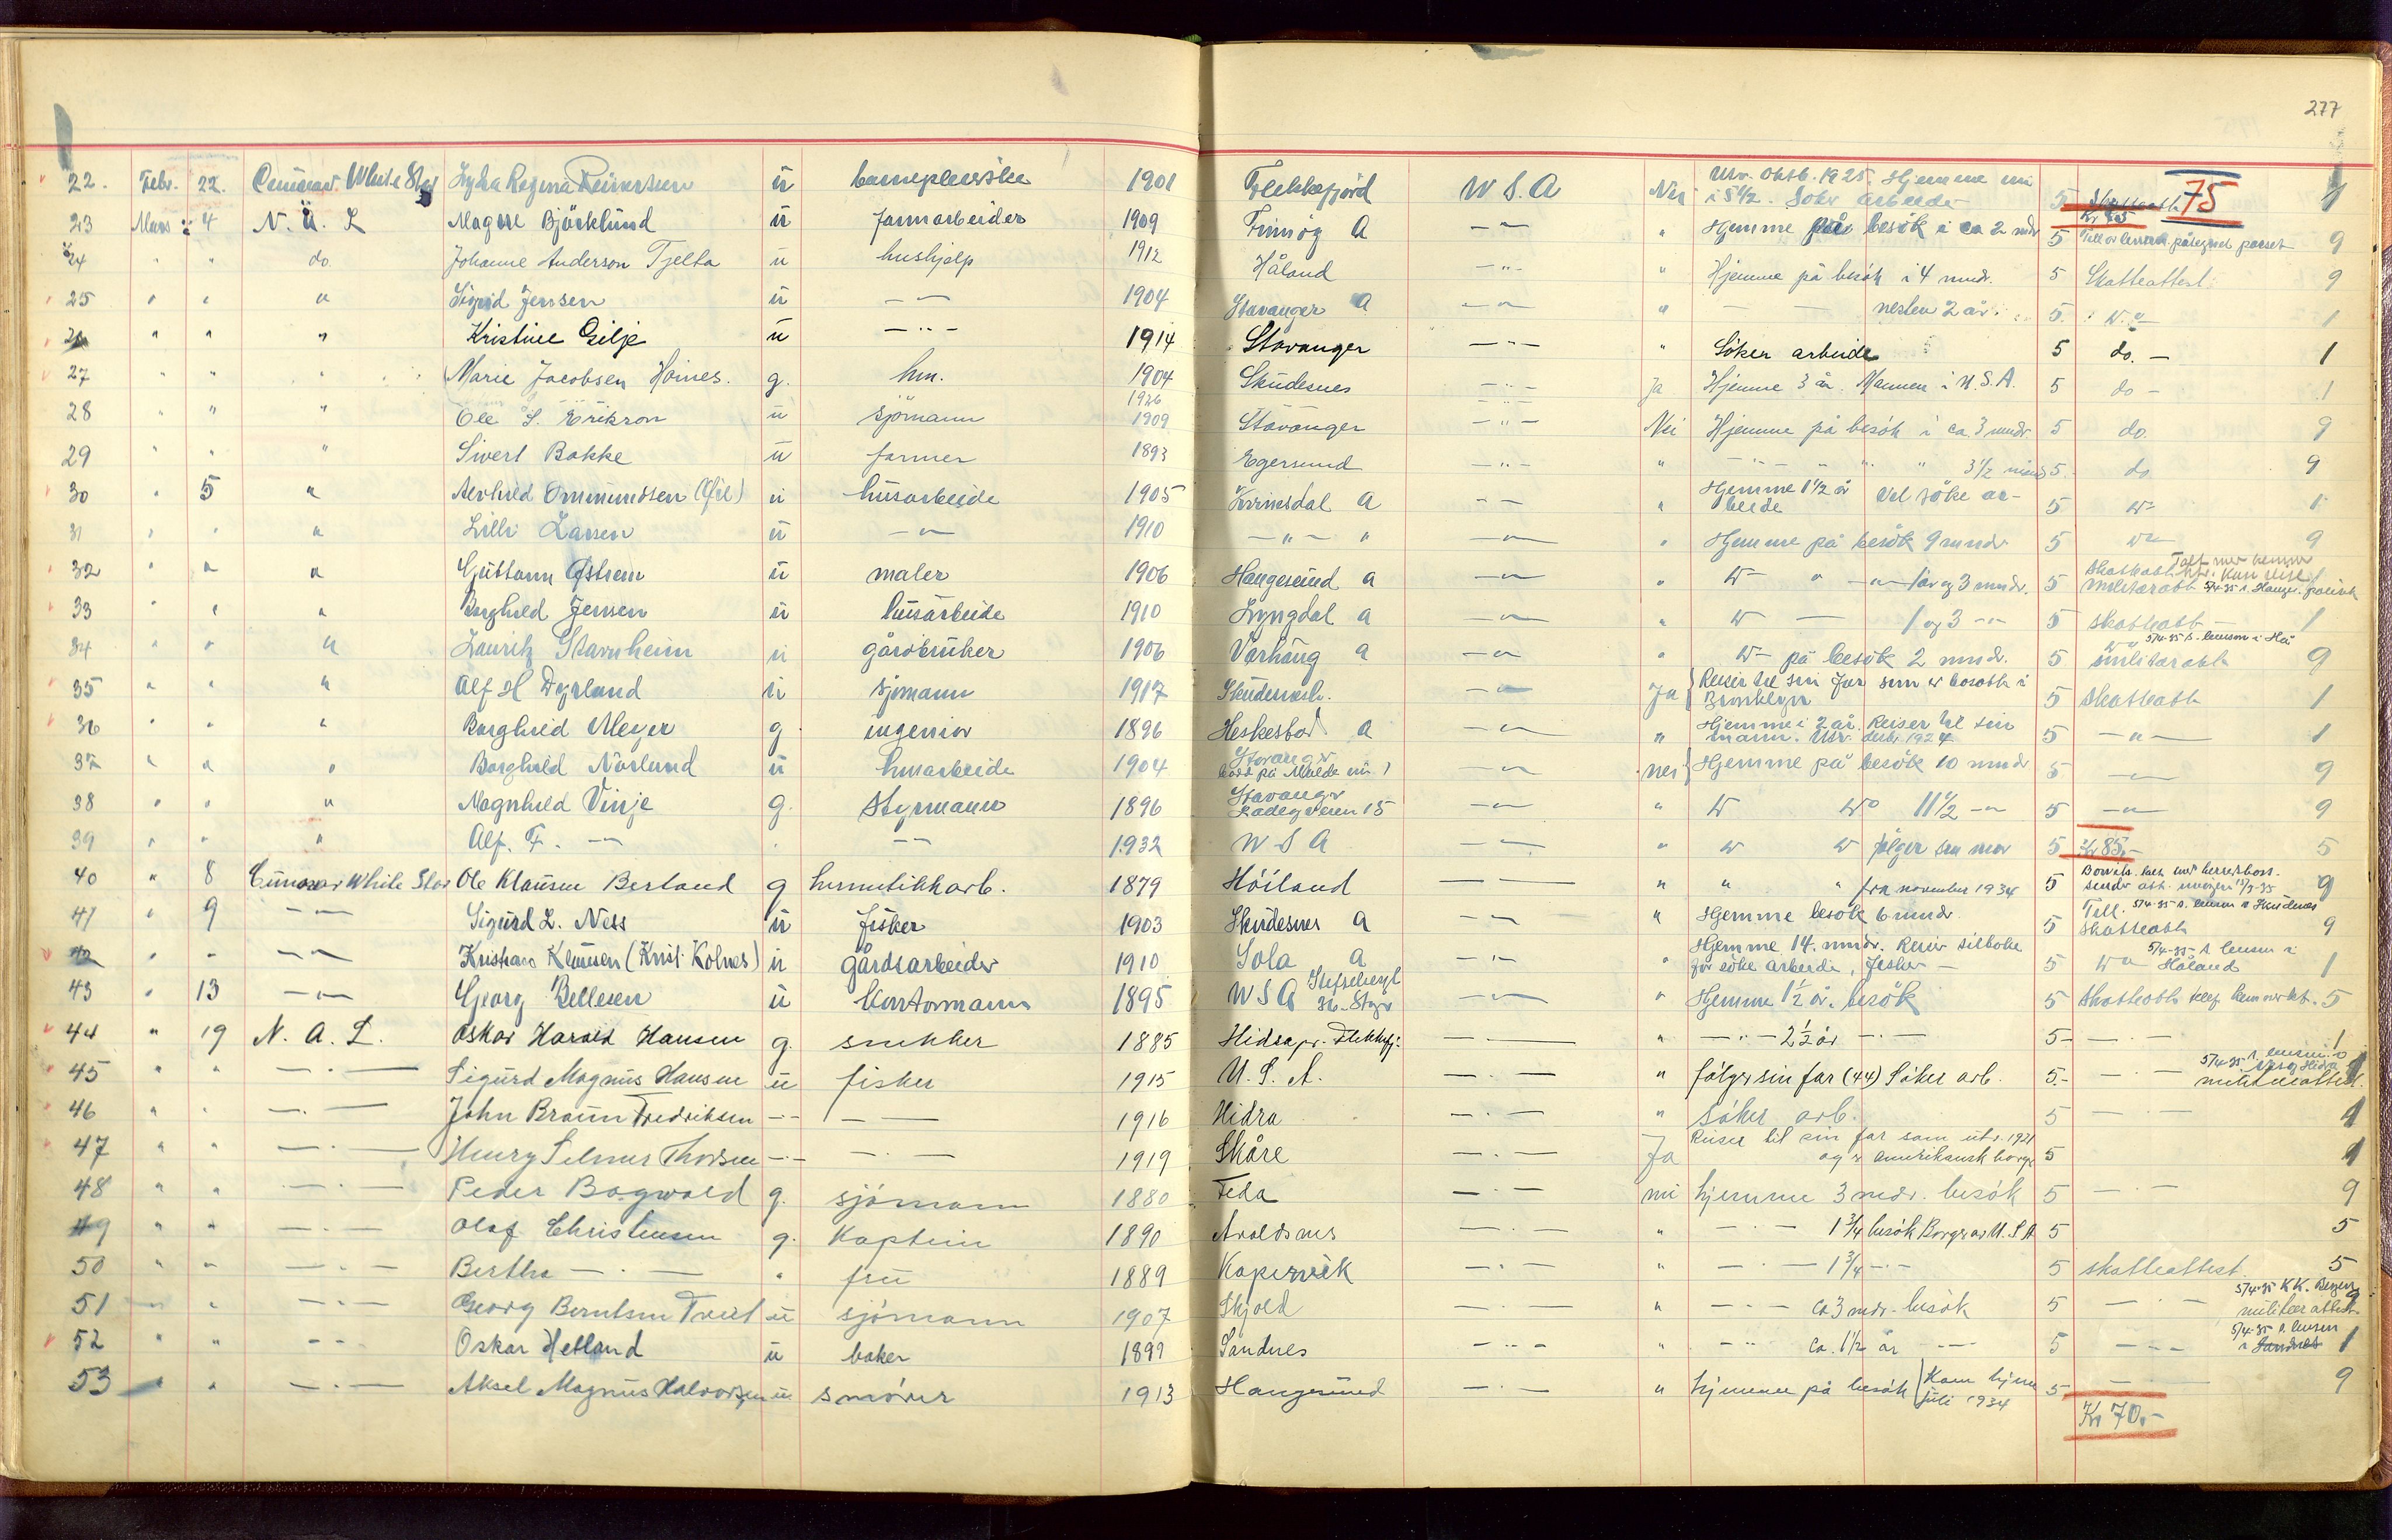 277
22. Febr. 22. Cunard White Star Lydia Regina Reinertsen ü barnepleierske 1901 Flekkefjord U S. A Nei Utv. Oktb. 1925. Hjemme nu i 5 1/2. Søker arbeide 5 Skatteatt 75 1
Kr 75
23 Mars 4 N. A. L Magne Bjørklund ü farmarbeider 1909 Finnøy A —"— " Hjemme på besök i ca 2 mdr 5 påtegned passet 9
24 " " do. Johanne Anderson Tjelta ü hushjelp 1912 Håland —"— " Hjemme på besök i 4 mndr. 5 Skatteattest 9
25 " " " Sigrid Jensen ü —"— 1904 Stavanger A —"— " — — nesten 2 år 5. —"— 1
26 " " " Kristine Gilje ü —"— 1914 Stavanger —"— " Söker arbeide 5 do. — 1
27 " " " Marie Jacobsen Hoines. g. hm. 1904 Skudesnes —"— Ja Hjemme 3 år. Mannen i U.S.A. 5 do — 1
1926 —"—
28 " " " Ole S. Erikson ü sjömann 1909 Stavanger —"— Nei Hjemme på besök i ca. 3 mndr 5 do. 9
29 " " " Sivert Bakke ü farmer 1893 Egersund —"— " —"— " " " 3 1/2 mnd 5. do 9
30 " 5 " Ommundsen ü husarbeide 1905 Kvinesdal A —"— " Hjemme 1 1/2 år Vil söke arbeide 5 —"— 1
31 " " " Lilli Larsen ü —"— 1910 —"— " —"— " Hjemme på besök 9 mndr 5 —"— 9
32 " " " Guttorm Østrem ü maler 1906 Haugesund a —"— " —"— " —"— 1 år og 3 mndr. 5 Skatteatt militæratt 5/4-35 1
33 " " " Borghild Jensen ü husarbeide 1910 Lyngdal a —"— " —"— — 1 og 3 —"— 5 skatteatt — 1
34 " " " Lauritz Stavnheim ü gårdbruker 1906 Varhaug a —"— " —"— på besök 2 mndr. 5 militæratt 5/4-35 9
35 " " " Alf H Dyrland ü sjömann 1917 Skudenesh. —"— Ja Reiser til sin far som er bosatt i Brooklyn 5 skatteatt 1
36 " " " Borghild Meyer g. ingeniör 1896 Heskestad a —"— " Hjemme i 2 år. Reiser til sin mann. Utv. 1924 5 —"— 1
37 " " " Borghild Nårlund ü husarbeide 1904 Stavanger —"— nei Hjemme på besök 10 mndr 5 —"— 9
38 " " " Magnhild Vinje g. Styrmann 1896 Stavanger 15 —"— " —"— —"— 11 1/2 —"— 5 —"— 9
39 " " " Alf. F. —"— . —"— 1932 U S A —"— " —"— —"— fölger sin mor 5 Kr 85,- 5
40 " 8 Cunard White Star Ole Klausen Berland g hermetikkarb. 1879 Höiland —"— " " " fra november 1934 5 9
41 " 9 —"— Sigurd L. Ness ü fisker 1903 Skudesnes A —"— " Hjemme besök 6 mndr. 5 Skatteatt 5/4-35 Skudenes 9
42 " " —"— Kristian Klausen (Krist. Kolnes) ü gårdsarbeider 1910 Sola A —"— " Hjemme 14. mndr. Reiser tilbake for söke arbeide, fisker — 5 —"— 5/4-35 Håland 1
43 " 13 —"— Georg Bellesen ü kontormann 1895 U S A 36. Stvgr —"— " Hjemme 1 1/2 år. besök 5 Skatteatt. 5
44 " 19 N. A. L. Oskar Harald Hansen g. snekker 1885 Hidra pr. Flekkefj: —"— " —"— 2 1/2 år —"— 5- —"— 1
45 " " —"— Sigurd Magnus Hansen ü fisker 1915 U. S. A. —"— " fölger sin far (44) Söker arb. 5.- —"— 5/4-35 Hidra militæratt. 1
46 " " —"— John Braun Fredriksen —"— — 1916 Hidra —"— " Söker arb. 5 —"— 1
47 " " —"— Henry Selmer Thorsen —"— —"— 1919 Skåre —"— Ja Reiser til sin far som utv. 1921 og er amerikansk borger 5 1
48 " " —"— Peder Bogwald g. sjömann 1880 Feda —"— nei hjemme 3 mdr. besök 5 —"— 9
49 " " —"— Olaf Christensen g. Kaptein 1890 Avaldsnes —"— " —"— 1 3/4 besök Borger av U.S.A 5 5
50 " " —"— Bertha —"— " fru 1889 Kopervik —"— " —"— 1 3/4 —"— 5 skatteattest 5
51 " " —"— Georg Berntsen Tveit ü sjömann 1907 Skjold —"— " —"— ca 3 mdr. besök 5 —"— 5/4-35 K.K. Bergen militær attest 9
52 " " —"— Oskar Hetland ü baker 1899 Sandnes —"— " —"— ca. 1 1/2 år —"— 5 —"— 5/4-35 Sandnes 1
53 " " —"— Aksel Magnus Halvorsen ü. smörer 1913 Haugesund —"— " hjemme på besök (Kom hjem juli 1934 5 —"— 9
Kr 70.-